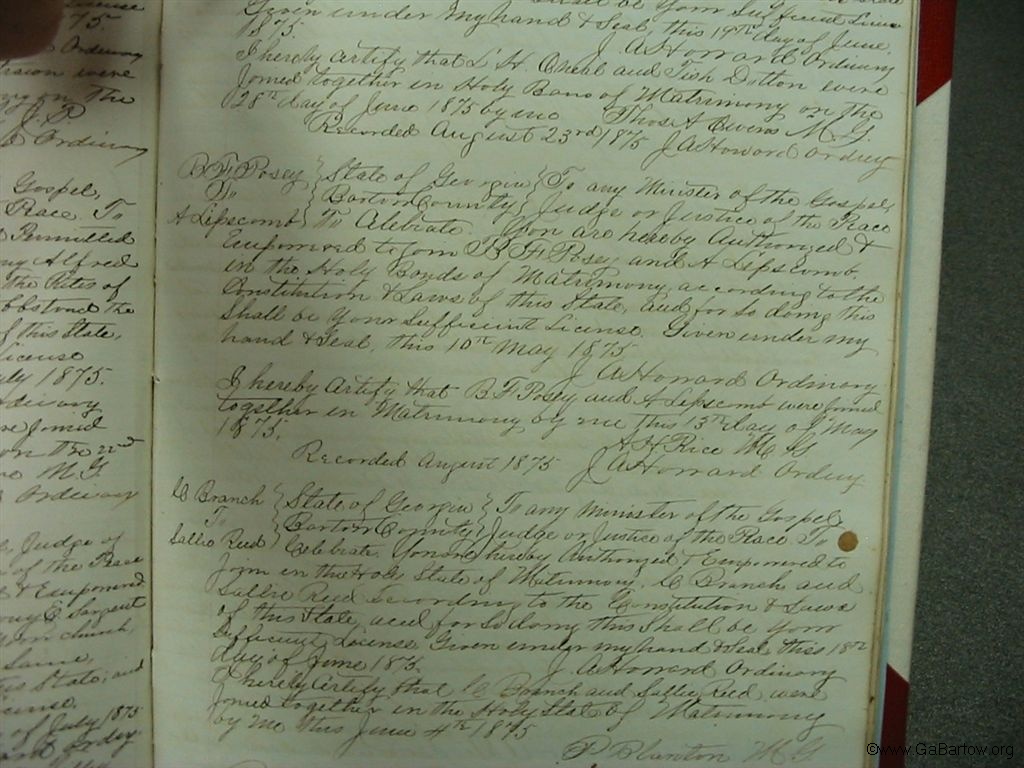 shall be your Sufficient License
Given under my hand & Seal, this 19th day of June,
1875. J. A. Howard Ordinary
I hereby certify that L H. Oneal and Tish Dutton were
Joined together in Holy Bans of Matrimony on the
28th day of June 1875 by me Thos A Owens M G.
Recorded August 23rd 1875 J A Howard Ordny
B F Posey } State of Georgia } To any Minister of the Gospel,
To } Bartow County } Judge or Justice of the Peace
A Lipscomb } To Celebrate You are hereby Authorized &
Empowered to Join B F Posey and A Lipscomb
in the Holy Bonds of Matrimony, according to the
Constitution & Laws of this State, and for So doing this
Shall be Your Sufficient License Given under my
hand & Seal, this 10th May 1875
J A Howard Ordinary
I hereby Certify that B F Posey and A Lipscomb were Joined
together in Matrimony by me this 13th day of May
1875. A H Rice M G
Recorded August 1875 J A Howard Ordny
C Branch } State of Georgia } To any Minister of the Gospel,
To } Bartow County } Judge or Justice of the Peace To
Sallie Reid } Celebrate You are hereby Authorized & Empowered to
Join in the Holy State of Matrimony, C Branch and
Sallie Reid According to the Constitution & Laws
of this State, and for So doing this Shall be your
Sufficient License Given under my hand & Seal this 18th
day of June 187 J. A Howard Ordinary
I hereby Certify that C Branch and Sallie Reid were
Joined together in the Holy State of Matrimony
by me this June 4th 1875
P Blanton M G.
Gospel,
Peace To
Permitted
Alfred
the Rites of
the
of this State,
License
July 1875.
Ordinary
Joined
on the 22nd
M G
Ordinary
Judge of
of the Peace
& Empowered
C. Sargent
church,
Same,
State; and
License.
of July 1875
Ordny
©www.GaBartow.org